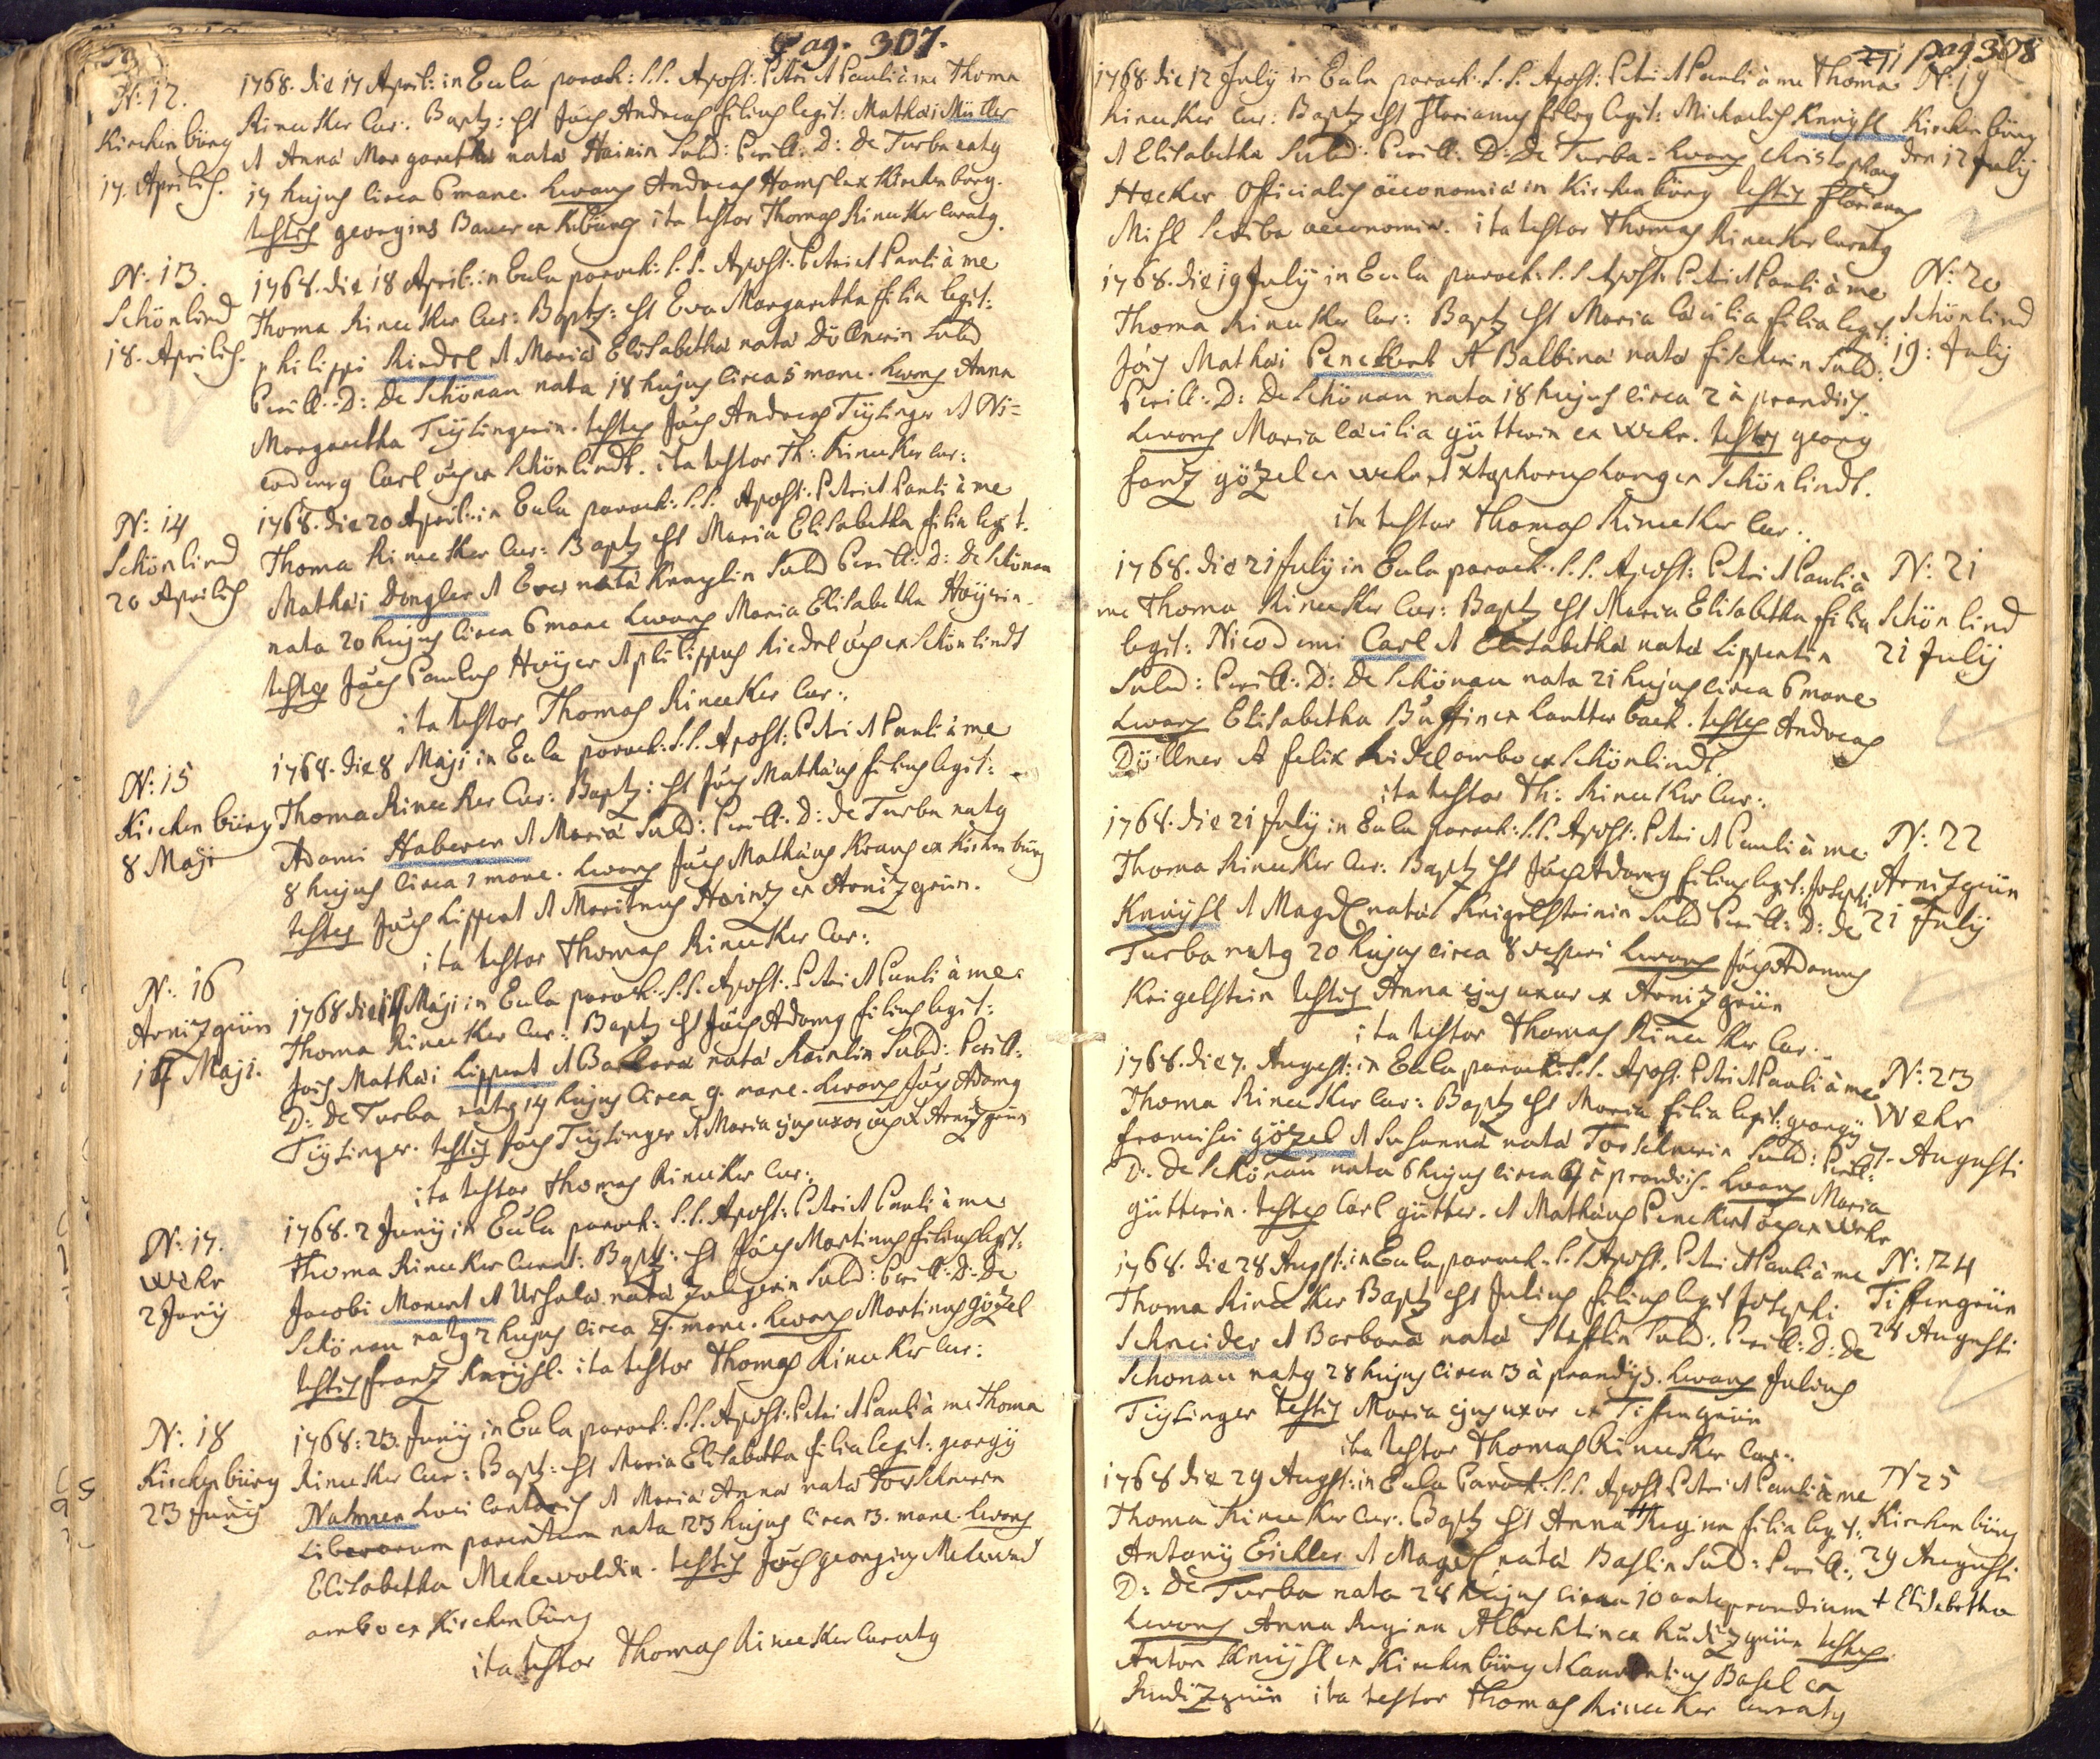 Pag. 307.
N: 12.
Kirchenbürg
17. Aprilis.
1768. die 17 April: in Eccla paroch: S.S. Apost: Petri et Pauli à me Thoma
Rinecker Cur: Baptz: est Joës Andreas filius legit: Mathæi Müller
et Anna Margaretha nata Hainin Subd: Perill: D: de Turba natus
17 hujus circa 6 mane. Levans Andreas Kirchenbürg.
testis georgius Bauer ex Kbürg ita testor Thomas Rinecker Curatus.
N: 13.
Schönlind
18. Aprilis.
1768. die 18 April: in Eccla paroch: S.S. Apost: Petri et Pauli à me
Thoma Rinecker Cur: Baptz: est Eva Margaretha filia legit:
philippi Riedel et Maria Elisabetha nata Döllnerin Subd
Perill: D: de Schönau nata 18 hujus circa 5 mane. Levans Anna
Margaretha Tiÿslingerin. testes Joës Andreas Tiÿslinger et Ni=
codemg Carl ex Schönlindt. ita testor Th: Rinecker Cur:
N: 14
Schönlind
20 Aprilis
1768. die 20 April: in Eccla paroch: S.S. Apost: Petri et Pauli à me
Thoma Rinecker Cur: Baptz est Maria Elisabetha filia legit.
Mathæi Dongler et Eva nata Knaÿslin Subd Perill: D: de Schönau
nata 20 hujus circa 6 mane Levans Maria Elisabetha Hoÿerin.
testes Joës Paulus Hoÿer et philippus Riedel ex Schönlindt
ita testor Thomas Rinecker Cur:
N: 15
Kirchenbürg
8 Maji
1768. die 8 Maji in Eccla paroch: S.S. Apost: Petri et Pauli à me
Thoma Rinecker Cur: Baptz: est Joës Mathæus filius legit:
Adami Haberer et Maria Subd: Perill: D: de Turba natus
8 hujus circa 1 mane. Levans Joës Mathæus Kraus ex Kirchenbürg
testes Joës Lippert et Martinus Hainz ex Arnizgrün.
ita testor Thomas Rinecker Cur:
N: 16
Arnizgrün
Maji.
1768 die Maji in Eccla paroch: S.S. Apost: Petri et Pauli à me
Thoma Rinecker Cur: Baptz est Joës Adamg filius legit:
Jois Mathæi Lippert et Barbara nata Subd: Perill:
D: de Turba natus 14 hujus circa 9. mane. Levans Joës Adamg
Tiÿslinger. testis Joës Tiÿslinger et Maria ejus uxor ex Arnizgrün
ita testor Thomas Rinecker Cur:
N: 17.
Wehr
2 Junij
1768. 2 Junij in Eccla paroch: S.S. Apost: Petri et Pauli à me
Thoma Rinecker Curat: Baptz: est Joës Martinus filius legit:
Jacobi Monert et Ursula nata Subd: Perill: D: de
Schönau natg 2 hujus circa mane. Levans Martinus gözel
testis franz Knaÿsl. ita testor Thomas Rinecker Cur:
N: 18
Kirchenbürg
23 Junij
1768: 23. Junij in Eccla paroch: S.S. Apost: Petri et Pauli à me Thoma
Rinecker Cur: Baptz: est Maria Elisabetha filia legit: georgij
Nahner Loci Cantoris et Maria Anna nata Torschnerin
Liberorum parentum nata 23 hujus circa 3. mane. Levans
Elisabetha Mehrwaldin. testis Joës georgius Mehrwald
ambo ex Kirchenbürg
ita testor Thomas Rinecker Curatg
pag 308
N: 19
Kirchenbürg
den 12 July
1768. die 12 July in Eccla paroch: S.S. Apost: Petri et Pauli à me Thoma
Rinecker Cur: Baptz est Florianus filius legit: Michaelis Knaÿsl
et Elisabetha Subd: Perill: D: de Turba. Levans Christophorg
Hecker Officialis œconomiæ in Kirchenbürg testis Florianus
Misl Scriba œconomiæ. ita testor Thomas Rinecker Curatg
N: 20
Schönlind
19: July
1768. die 19 July in Eccla paroch: S.S Apost: Petri et Pauli à me
Thoma Rinecker Cur: Baptz est Maria Cæcilia filia legit:
Jois Mathæi Penckert et Balbina nata fischerin Subd:
Perill: D: de Schönau nata 18 hujus circa 2 à prandiis.
Levans Maria Cæcilia gütterin ex Wehr. testes georg
franz gözel ex Wehr et Xtophorus Langer Schönlindt.
ita testor Thomas Rinecker Cur:
N: 21
Schönlind
21 July
1768. die 21 July in Eccla paroch: S.S. Apost: Petri et Pauli à
me Thoma Rinecker Cur: Baptz est Maria Elisabetha filia
legit: Nicodemi Carl et Elisabetha nata Lippertin
Subd: Perill: D: de Schönau nata 21 hujus circa 6 mane
Levans Elisabetha ex Lautterbach. testes Andreas
Döllner et felix Ridel ambo ex Schönlindt.
ita testor Th: Rinecker Cur:
N: 22
Arnizgrün
21 July
1768. die 21 July in Eccla paroch: S.S. Apost: Petri et Pauli à me
Thoma Rinecker Cur: Baptz est Joës Adamg filius legit: Josephi
Knaÿsl et Magd nata Krigelsteinin Subd Perill: D: de
Turba natg 20 hujus circa 8 vesperi Levans Joës Adamus
Krigelstein testis Anna ejus uxor ex Arnizgrün
ita testor Thomas Rinecker Cur:
N: 23
Wehr
7. Augusti
1768. die 7. August: in Eccla paroch: S.S. Apost. Petri et Pauli à me
Thoma Rinecker Cur: Baptz est Maria filia legit: georgij
francisci gözel et Susanna nata Torschnerin Subd: Perill:
D: de Schönau nata 6 hujus circa à prandiis. Levans Maria
gütterin. testes Carl gütter. et Mathæus Penckert ex Wehr
N: 24
Tiffengrün
28 Augusti
1768. die 28 August: in Eccla paroch. S.S Apost. Petri et Pauli à me
Thoma Rinecker Baptz est Julius filius legit Josephi
Schneider et Barbara nata Subd: Perill: D: de
Schonau natg 28 hujus circa 3 à prandijs. Levans Julius
Tiÿslinger testis Maria ejus uxor ex Tiffengrün
ita testor Thomas Rinecker Cur:
N 25
Kirchenbürg
29 Augusti
+ Elisabetha
1768 die 29 August: in Eccla Paroch: S.S. Apost Petri et Pauli à me
Thoma Rinecker Cur: Baptz est Anna Regina filia legit:
Antonij Eichler et Magd nata Baslin Subd: Perill:
D: de Turba nata 28 hujus circa 10 ante prandium
Levans Anna Regina Albrechtin ex Rudizgrün testes
Anton Knaÿsl ex Kirchenbürg et Laurentius Basel ex
Rudizgrün ita testor Thomas Rinecker Curatg